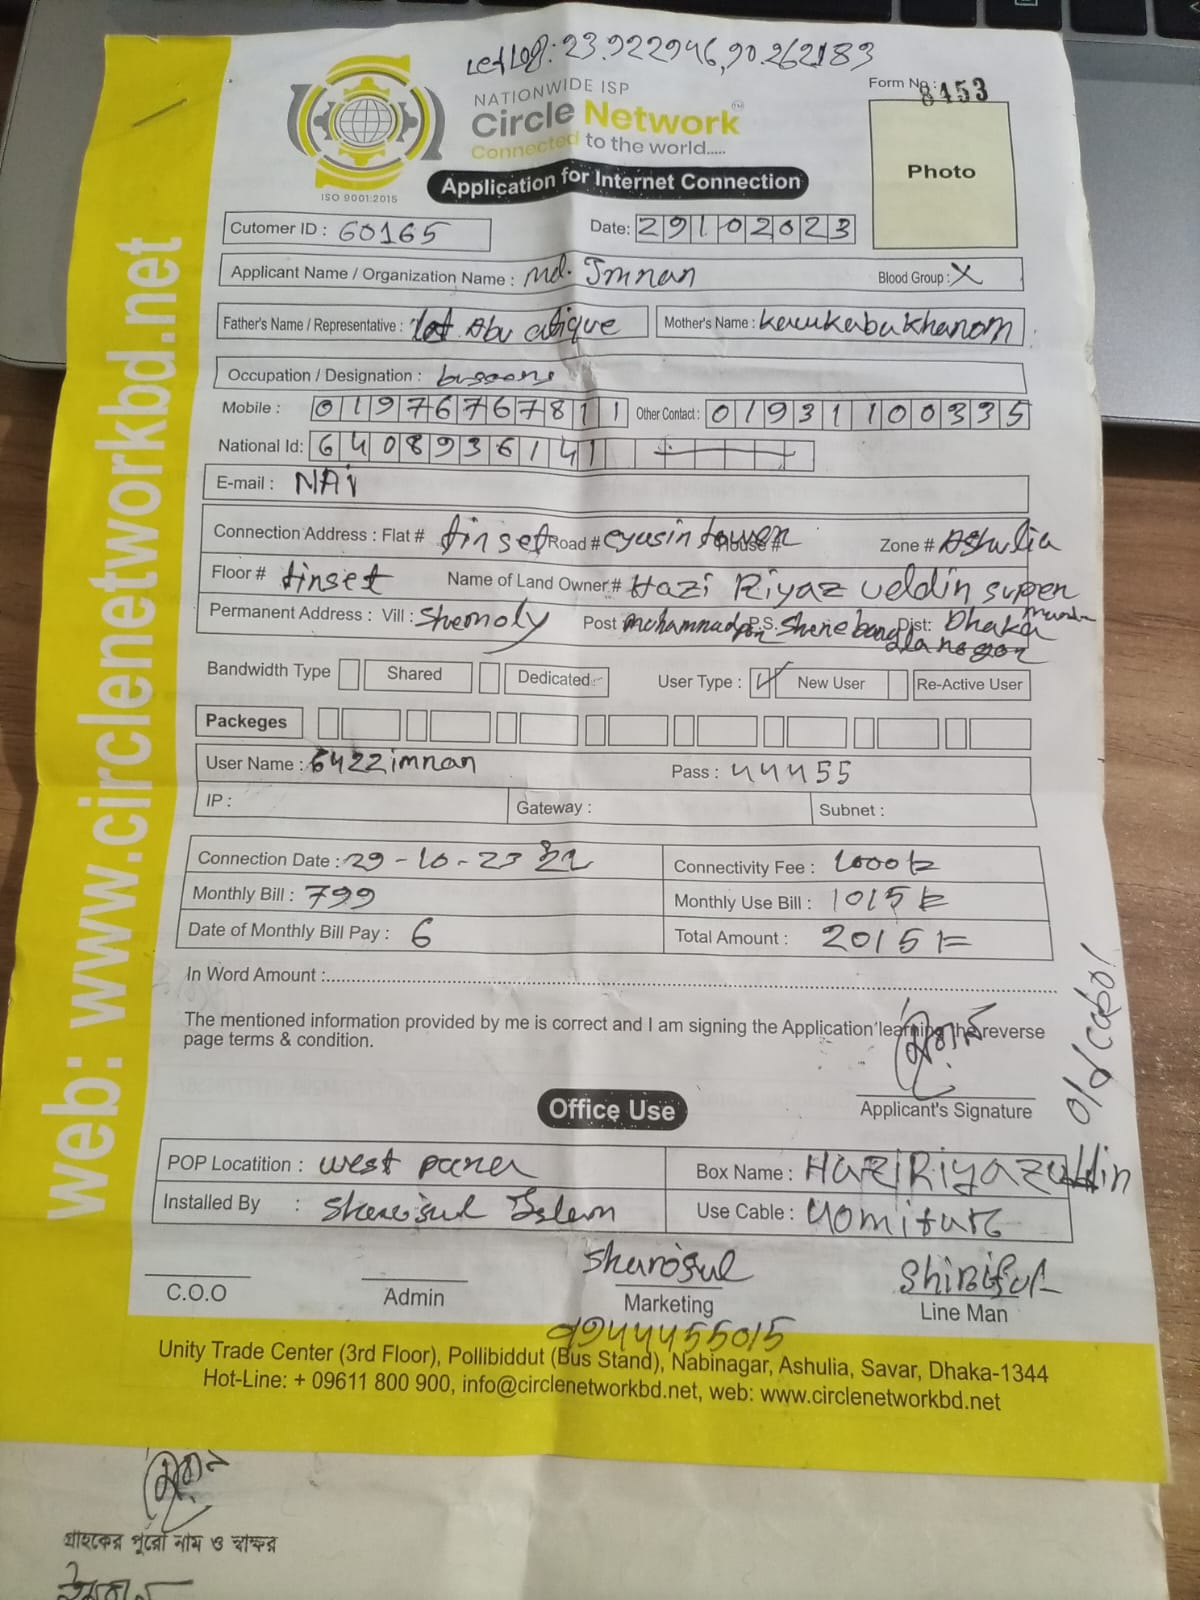 Let Log: 23.922946, 90.262183
NATIONWIDE ISP
Circle Network
Connected to the world.....
ISO 9001:2015
Form No: 8453
Photo
Application for Internet Connection
Cutomer ID : 60165 Date: 29102023
Applicant Name / Organization Name : Md. Imnan Blood Group : X
Father's Name / Representative : Lat Abu atique Mother's Name : kawkabu khanom
Occupation / Designation :
Mobile : 01976767811 Other Contact : 01931100335
National Id: 6408936141
E-mail : NAi
Connection Address : Flat # tinset Road # eyusin towen House # Zone # Ashulia
Floor # tinset Name of Land Owner# Hazi Riyaz ueldin supen
Permanent Address : Vill : Shemoly Post P.S. Dist: Dhaka
Bandwidth Type Shared Dedicated User Type : New User Re-Active User
Packeges
User Name : 6422imnan Pass : 44455
IP : Gateway : Subnet :
Connection Date : 29-10-23 Connectivity Fee : 1000
Monthly Bill : 799 Monthly Use Bill : 1015
Date of Monthly Bill Pay : 6 Total Amount : 2015
In Word Amount :
The mentioned information provided by me is correct and I am signing the Application learning the reverse
page terms & condition.
Applicant's Signature
old cabol
Office Use
POP Locatition : west paner Box Name : Hazi Riyazuddin
Installed By : Use Cable : Uomiture
C.O.O Admin Marketing Line Man
01944455015
Unity Trade Center (3rd Floor), Pollibiddut (Bus Stand), Nabinagar, Ashulia, Savar, Dhaka-1344
Hot-Line: + 09611 800 900, info@circlenetworkbd.net, web: www.circlenetworkbd.net
web: www.circlenetworkbd.net
গ্রাহকের পুরো নাম ও স্বাক্ষর